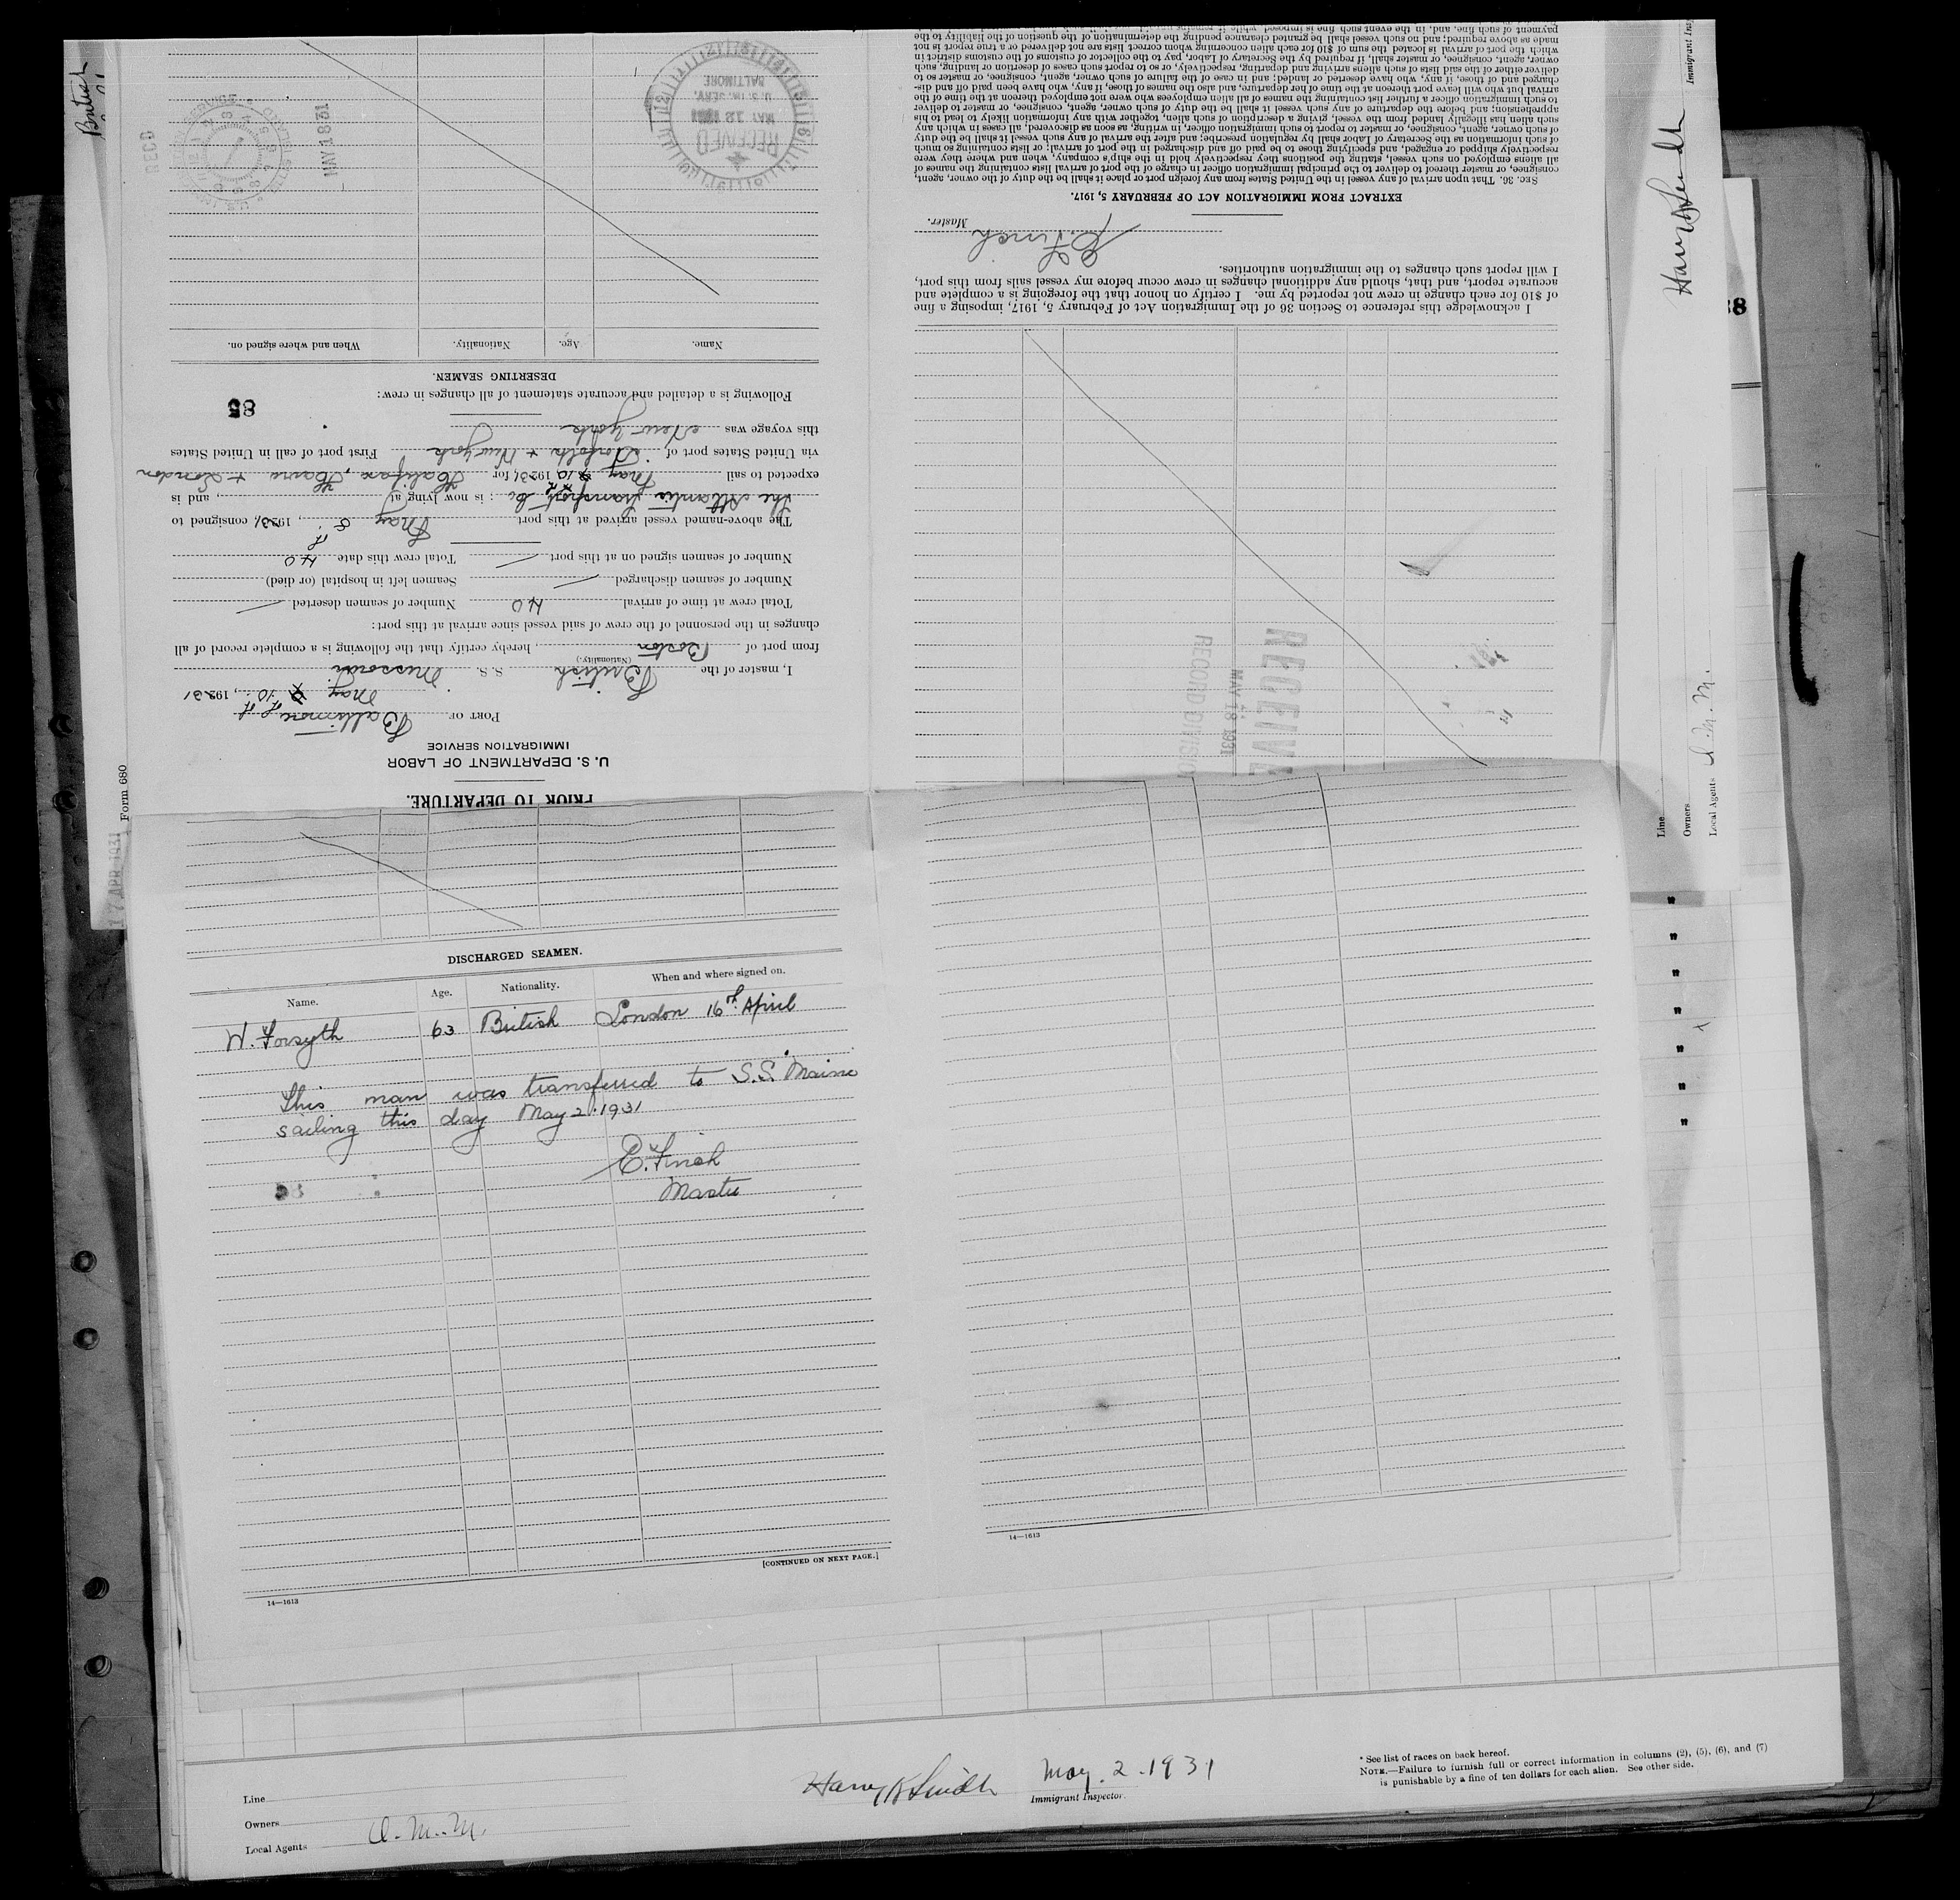 British
Form 680
17 APR 1931
PRIOR TO DEPARTURE.
U. S. DEPARTMENT OF LABOR
IMMIGRATION SERVICE
PORT OF Baltimore
May 10th, 1931
I, master of the British S. S. Missouri
(Nationality.)
from port of Boston, hereby certify that the following is a complete record of all
changes in the personnel of the crew of said vessel since arrival at this port:
Total crew at time of arrival 40 Number of seamen deserted
Number of seamen discharged Seamen left in hospital (or died)
Number of seamen signed on at this port Total crew this date 40
The above-named vessel arrived at this port May 8th, 1931, consigned to
The Atlantic Transport Co : is now lying at , and is
expected to sail May 10th 1931, for Halifax, Havre + London
via United States port of Norfolk + New York First port of call in United States
this voyage was New York
85
Following is a detailed and accurate statement of all changes in crew:
DESERTING SEAMEN.
Name. Age. Nationality. When and where signed on.
RECEIVED
MAY 12 1931
U. S. IM. SERV.
BALTIMORE
MAY 18 31
REC'D
RECEIVED
MAY 18 1931
RECORD DIVISION
I acknowledge this reference to Section 36 of the Immigration Act of February 5, 1917, imposing a fine
of $10 for each change in crew not reported by me. I certify on honor that the foregoing is a complete and
accurate report, and that, should any additional changes in crew occur before my vessel sails from this port,
I will report such changes to the immigration authorities.
E. Finch
Master.
EXTRACT FROM IMMIGRATION ACT OF FEBRUARY 5, 1917.
SEC. 36. That upon arrival of any vessel in the United States from any foreign port or place it shall be the duty of the owner, agent,
consignee, or master thereof to deliver to the principal immigration officer in charge of the port of arrival lists containing the names of
all aliens employed on such vessel, stating the positions they respectively hold in the ship's company, when and where they were
respectively shipped or engaged, and specifying those to be paid off and discharged in the port of arrival; or lists containing so much
of such information as the Secretary of Labor shall by regulation prescribe; and after the arrival of any such vessel it shall be the duty
of such owner, agent, consignee, or master to report to such immigration officer, in writing, as soon as discovered, all cases in which any
such alien has illegally landed from the vessel, giving a description of such alien, together with any information likely to lead to his
apprehension; and before the departure of any such vessel it shall be the duty of such owner, agent, consignee, or master to deliver
to such immigration officer a further list containing the names of all alien employees who were not employed thereon at the time of the
arrival but who will leave port thereon at the time of her departure, and also the names of those, if any, who have been paid off and dis-
charged and of those, if any, who have deserted or landed; and in case of the failure of such owner, agent, consignee, or master so to
deliver either of the said lists of such aliens arriving and departing, respectively, or so to report such cases of desertion or landing, such
owner, agent, consignee, or master shall, if required by the Secretary of Labor, pay to the collector of customs of the customs district in
which the port of arrival is located the sum of $10 for each alien concerning whom correct lists are not delivered or a true report is not
made as above required; and no such vessel shall be granted clearance pending the determination of the question of the liability to the
payment of such fine, and, in the event such fine is imposed, while it remains
DISCHARGED SEAMEN.
Name. Age. Nationality. When and where signed on.
W. Forsyth 63 British London 16th April
This man was transferred to S.S. Maine
sailing this day May 2. 1931
E. Finch
Master
[CONTINUED ON NEXT PAGE.]
14—1613
14—1613
Harry K Smith
Immigrant
38
Line
Owners
Local Agents I. M. M.
Line
Owners
Local Agents I. M. M.
Harry K Smith May. 2. 1931
Immigrant Inspector.
* See list of races on back hereof.
NOTE.—Failure to furnish full or correct information in columns (2), (5), (6), and (7)
is punishable by a fine of ten dollars for each alien. See other side.